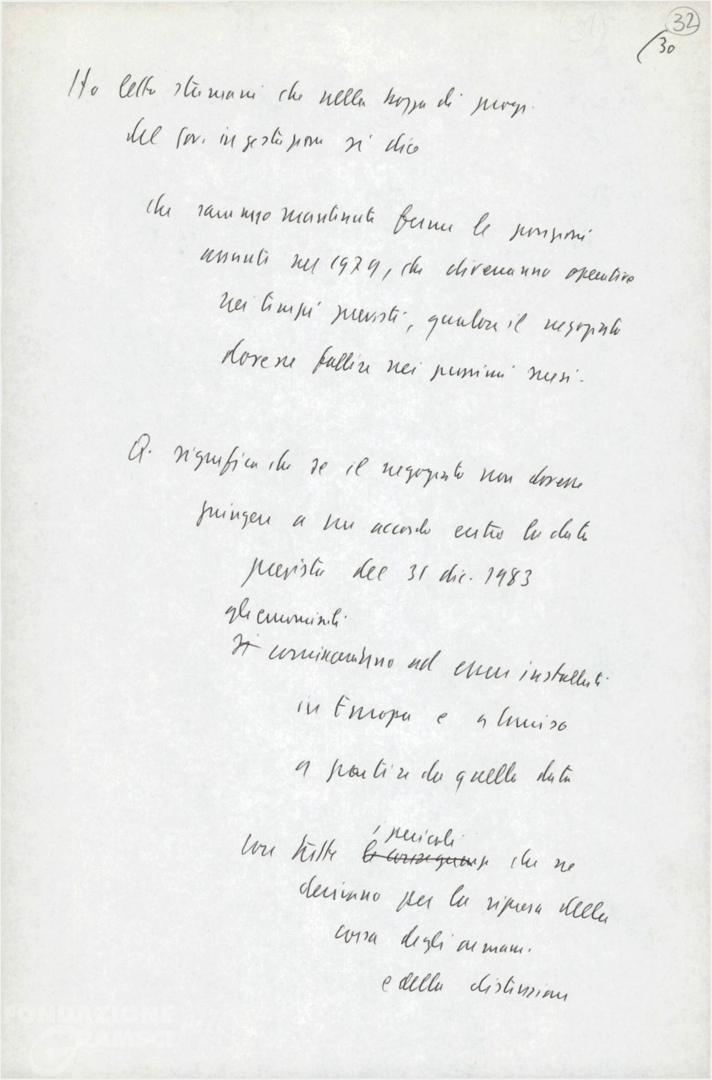 32
(30
Ho letto stamani che nella bozza di progr.
del Gov. in gestazione si dice
che saranno mantenute ferme le posizioni
assunte nel 1979, che diverranno operative
nei tempi previsti, qualora il negoziato
dovesse fallire nei prossimi mesi.
Q. significa che se il negoziato non dovesse
giungere a un accordo entro la data
prevista del 31 dic. 1983
gli euromissili
si cominceranno ad essere installati
in Europa e a Comiso
a partire da quella data
i pericoli
con tutte le conseguenze che ne
derivano per la ripresa della
corsa degli armam.
e della distensione
FONDAZIONE
GRAMSCI